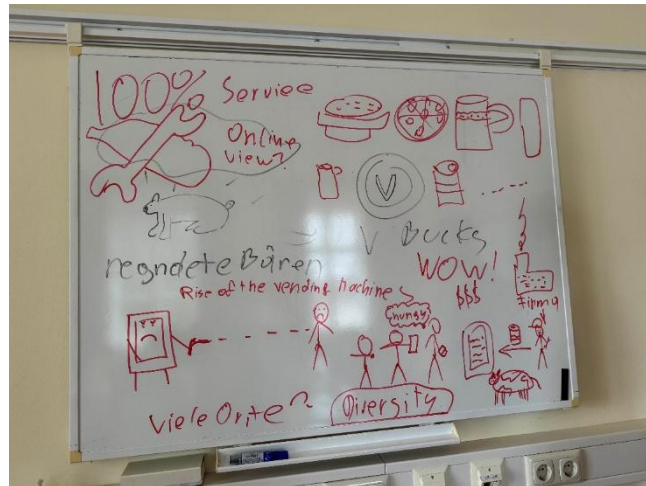 100% Service
Online
view?
V
V Bucks
regndete Bären
WOW!
$$$
Firma
Rise of the vending machine
hungy
Viele Orite?
Diversity